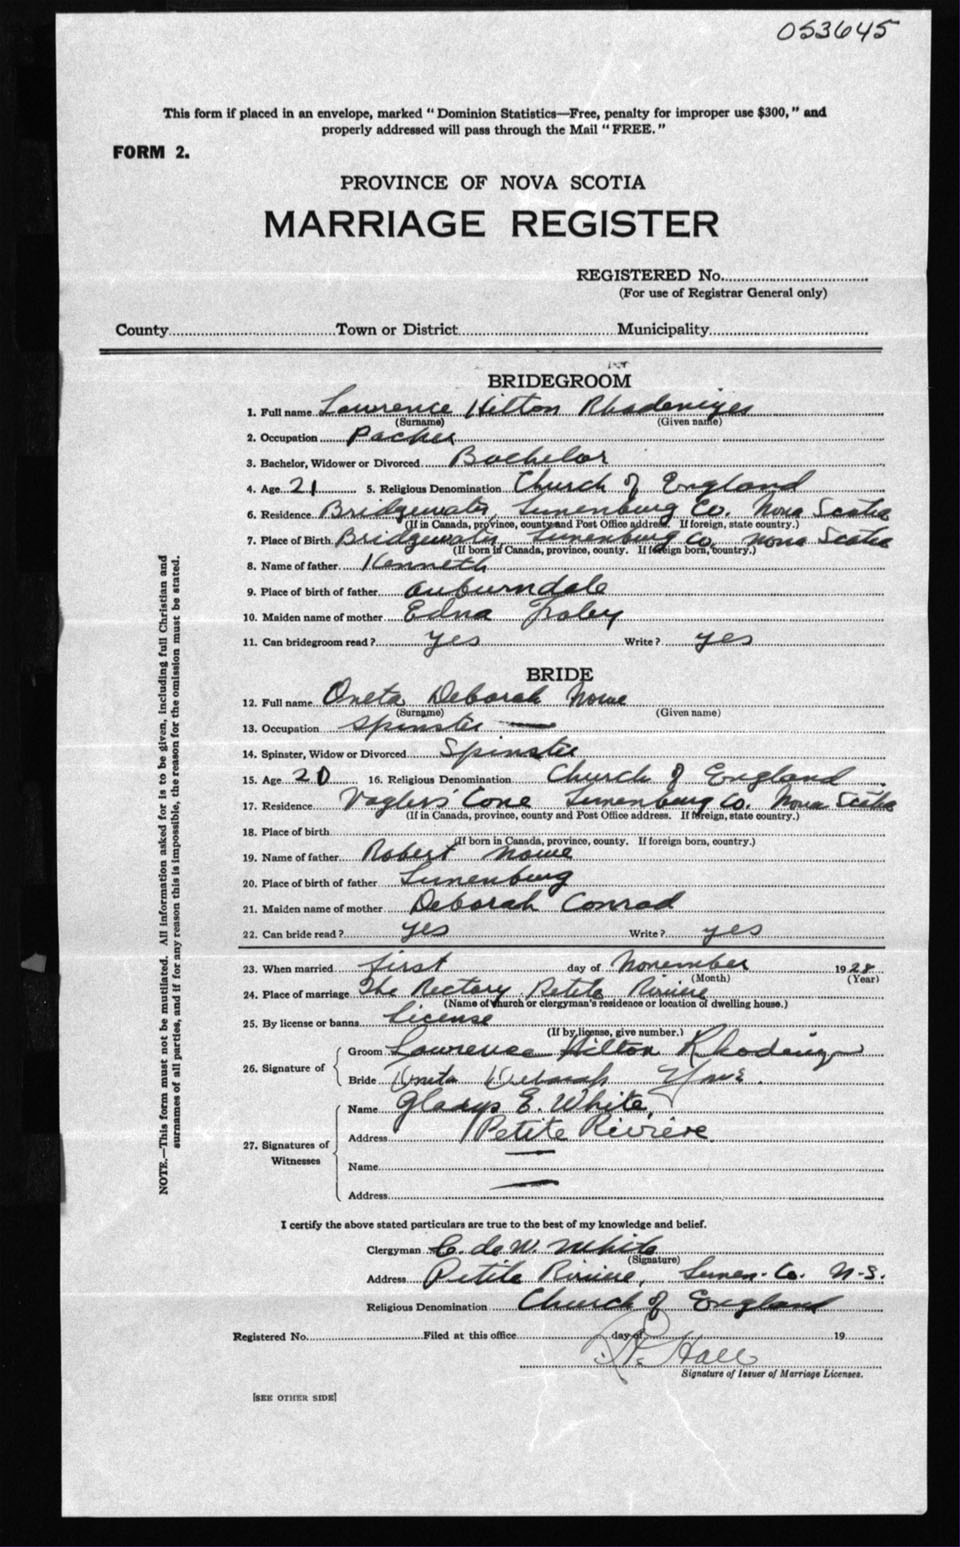 053645
This form if placed in an envelope, marked "Dominion Statistics—Free, penalty for improper use $300," and
properly addressed will pass through the Mail "FREE."
FORM 2.
PROVINCE OF NOVA SCOTIA
MARRIAGE REGISTER
REGISTERED No.
(For use of Registrar General only)
County Town or District Municipality
BRIDEGROOM
1. Full name Lawrence Hilton Rhodenizer
(Surname) (Given name)
2. Occupation Packer
3. Bachelor, Widower or Divorced Bachelor
4. Age 21 5. Religious Denomination Church of England
6. Residence Bridgewater, Lunenburg Co. Nova Scotia
(If in Canada, province, county and Post Office address. If foreign, state country.)
7. Place of Birth Bridgewater, Lunenburg Co. Nova Scotia
(If born in Canada, province, county. If foreign born, country.)
8. Name of father Kenneth
9. Place of birth of father Auburndale
10. Maiden name of mother Edna Foley
11. Can bridegroom read? yes Write? yes
BRIDE
12. Full name Oneta Deborah Nowe
(Surname) (Given name)
13. Occupation Spinster —
14. Spinster, Widow or Divorced Spinster
15. Age 20 16. Religious Denomination Church of England
17. Residence Voglers' Cove Lunenburg Co. Nova Scotia
(If in Canada, province, county and Post Office address. If foreign, state country.)
18. Place of birth
(If born in Canada, province, county. If foreign born, country.)
19. Name of father Robert Nowe
20. Place of birth of father Lunenburg
21. Maiden name of mother Deborah Conrad
22. Can bride read? yes Write? yes
23. When married first day of November 1928
(Month) (Year)
24. Place of marriage The Rectory Petite Riviere
(Name of church or clergyman's residence or location of dwelling house.)
25. By license or banns License
(If by license, give number.)
26. Signature of Groom Lawrence Hilton Rhodenizer
Bride Oneta Deborah Nowe.
27. Signatures of Witnesses Name Gladys E. White,
Address Petite Rivière
Name —
Address —
I certify the above stated particulars are true to the best of my knowledge and belief.
Clergyman C. de W. White
(Signature)
Address Petite Riviere, Lunen. Co. N.S.
Religious Denomination Church of England
Registered No. Filed at this office day of 19
Hall
Signature of Issuer of Marriage Licenses.
[SEE OTHER SIDE]
NOTE.—This form must not be mutilated. All information asked for is to be given, including full Christian and
surnames of all parties, and if for any reason this is impossible, the reason for the omission must be stated.